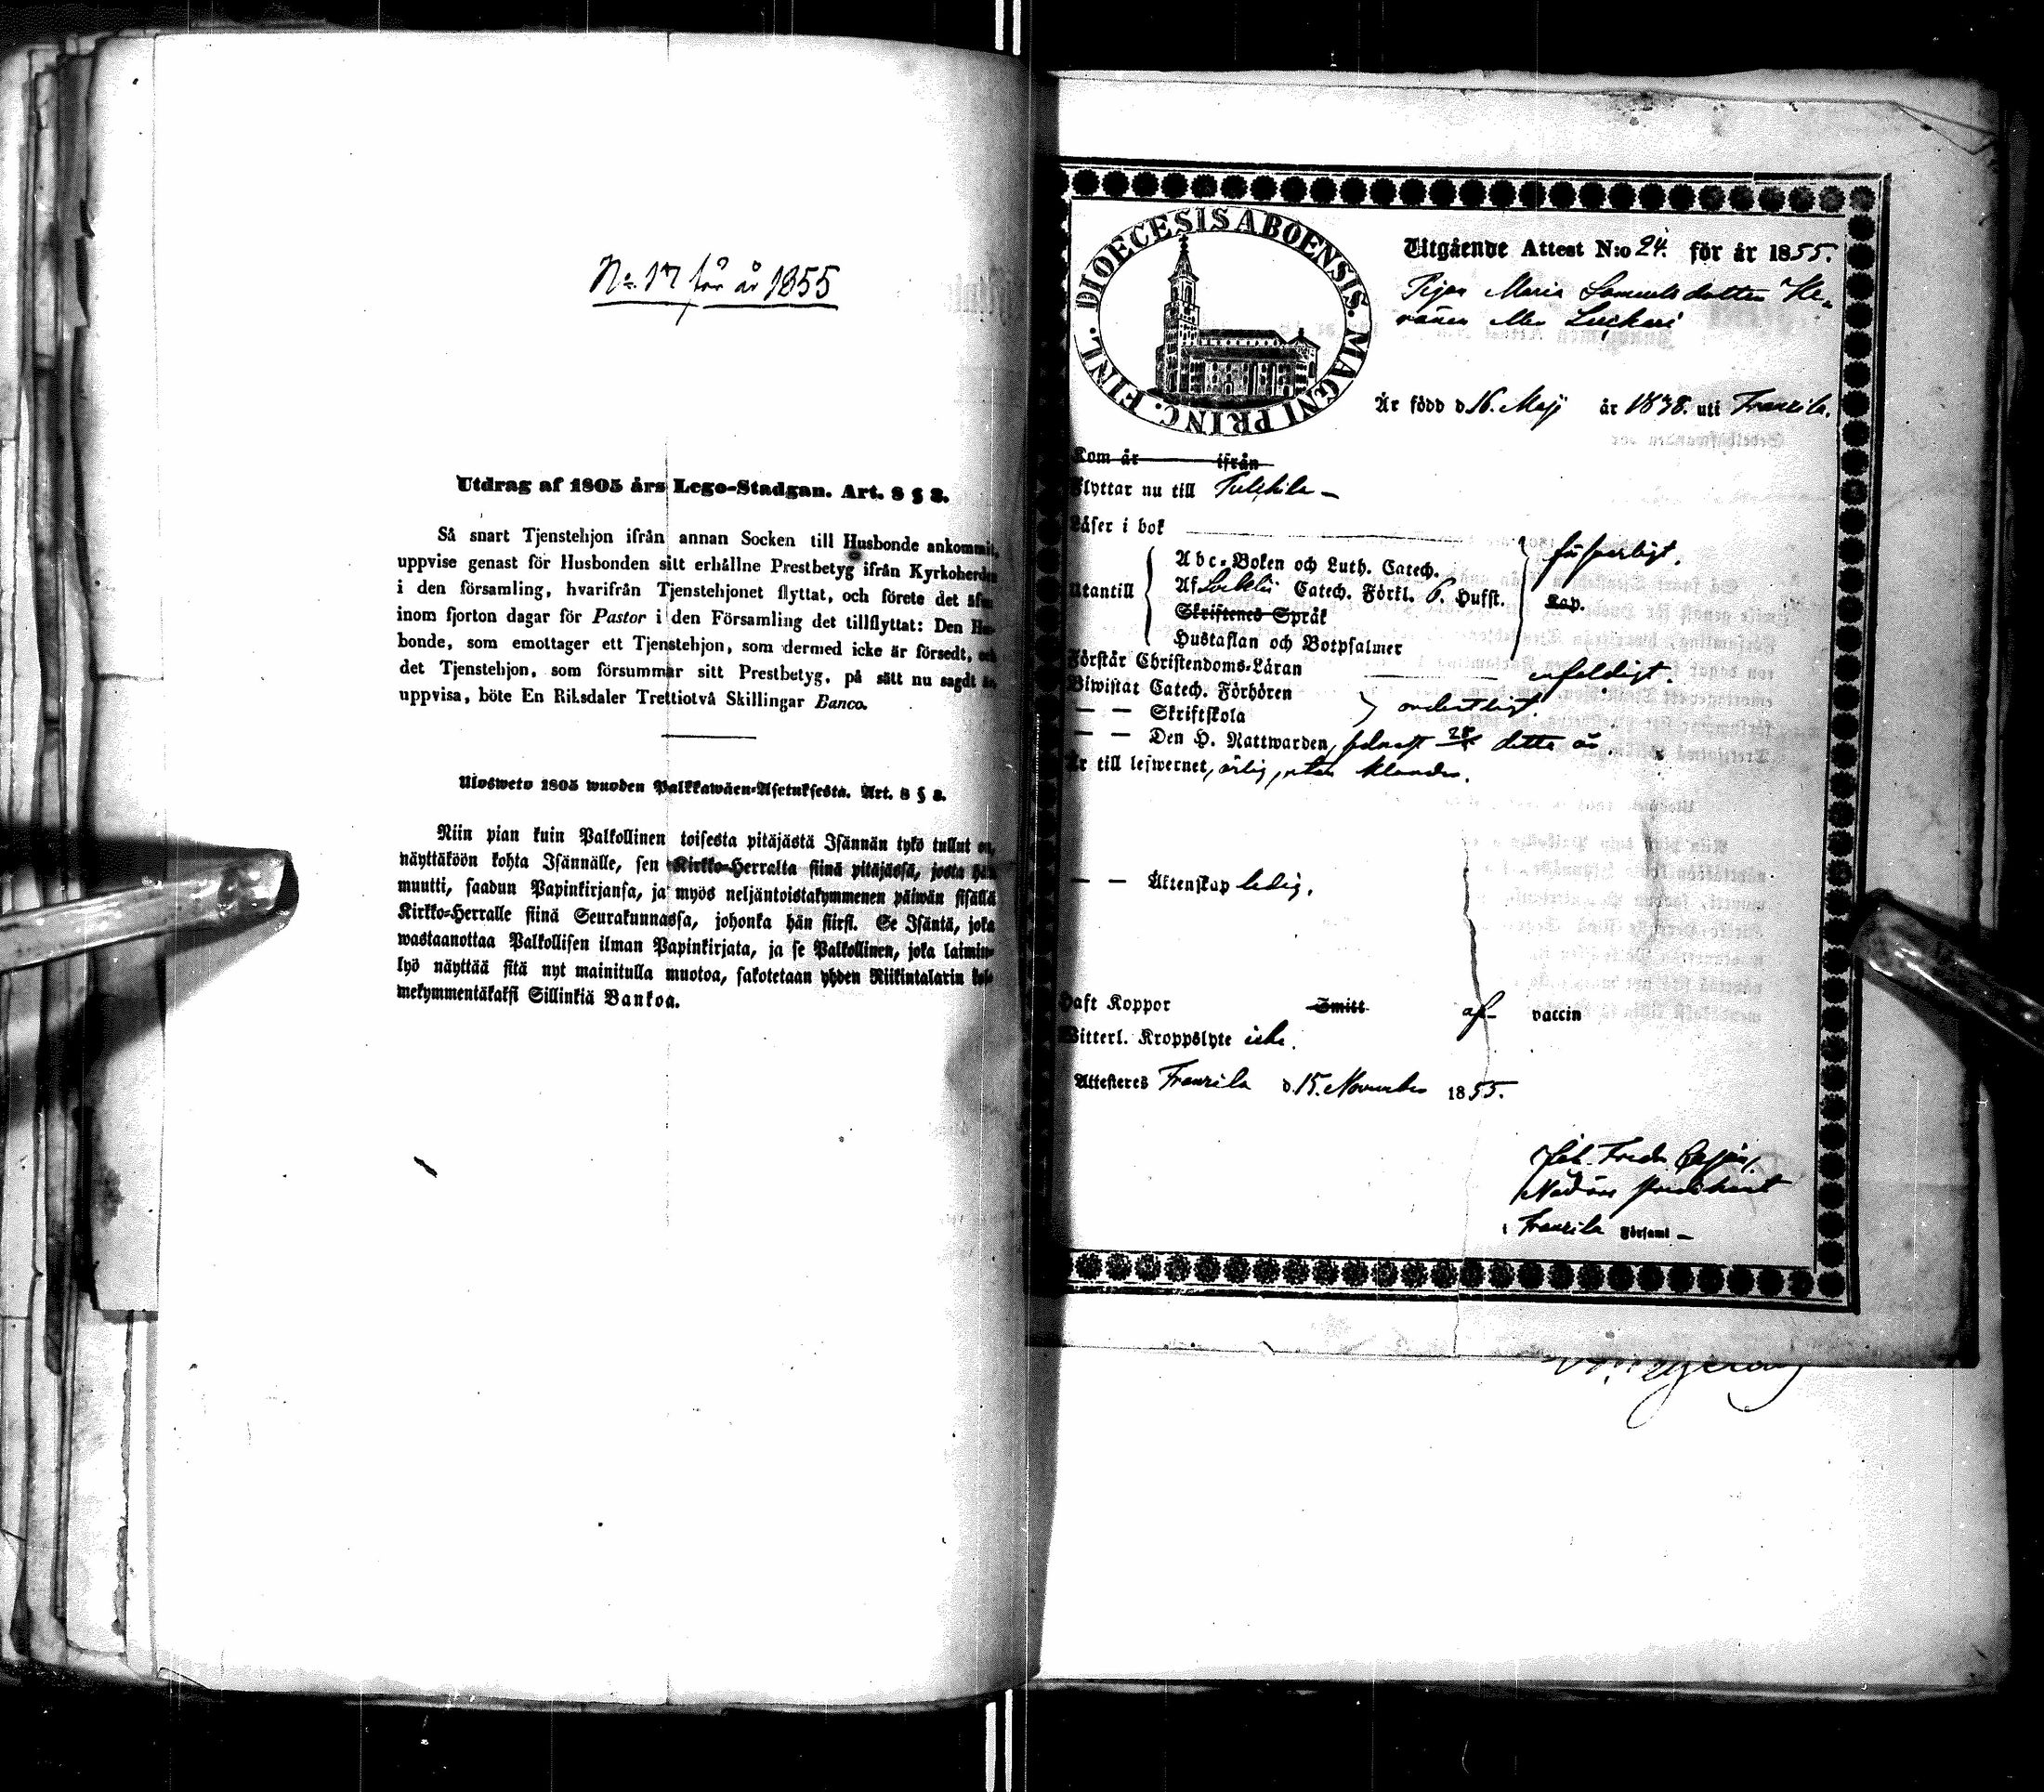 No 17 för år 1855
Utdrag af 1805 års Lego-Stadgan. Art. 8 § 8.
Så snart Tjenstehjon ifrån annan Socken till Husbonde ankommit,
uppvise genast för Husbonden sitt erhållne Prestbetyg ifrån Kyrkoherden
i den församling, hvarifrån Tjenstehjonet flyttat, och förete det äfen
inom fjorton dagar för Pastor i den Församling det tillflyttat: Den Hus-
bonde, som emottager ett Tjenstehjon, som dermed icke är försedt, och
det Tjenstehjon, som försummar sitt Prestbetyg, på sätt nu sagdt är,
uppvisa, böte En Riksdaler Trettiotvå Skillingar Banco.
Ulosweto 1805 wuoden Palkkawäen-Asetuksesta. Art. 8 § 8.
Niin pian kuin Palkollinen toisesta pitäjästä Isännän tykö tullut on,
näyttäköön kohta Isännälle, sen Kirkko-Herralta siinä pitäjässä, josta hän
muutti, saadun Papinkirjansa, ja myös neljäntoistakymmenen päiwän sisällä
Kirkko-Herralle siinä Seurakunnassa, johonka hän siirsi. Se Isäntä, joka
wastaanottaa Palkollisen ilman Papinkirjata, ja se Palkollinen, joka laimin-
lyö näyttää sitä nyt mainitulla muotoa, sakotetaan yhden Riikintalarin kol-
mekymmentäkaksi Sillinkiä Bankoa.
FINL. DIOECESIS ABOENSIS. MAGNI PRINC.
Utgående Attest N:o 24. för år 1855.
Pigan Maria Samuelsdotter
Är född d 16. Maji år 1838. uti Frantsila.
Kom år ifrån
Flyttar nu till
Läser i bok
försvarligt.
Abc-Boken och Luth. Catech.
Utantill Af Catech. Förkl. 6. Hufst. Kap.
Skriftenes Språk
Hustaflan och Botpsalmer
Förstår Christendoms-Läran enfaldigt.
Biwistat Catech. Förhören
— — Skriftskola ordentligt.
— — Den H. Nattwarden, detta år.
Är till lefwernet, ärlig, utan klander.
— — Äktenskap ledig.
Haft Koppor Smitt af vaccin
Witterl. Kroppslyte icke.
Attesteras Frantsila d. 15. November 1855.
Joh. Fredr.
i Frantsila Församl